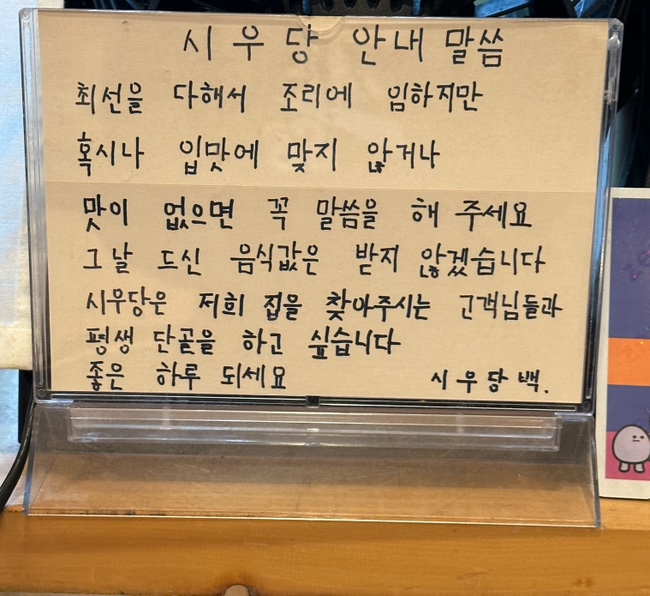 시우당 안내 말씀
최선을 다해서 조리에 임하지만
혹시나 입맛에 맞지 않거나
맛이 없으면 꼭 말씀을 해 주세요
그날 드신 음식값은 받지 않겠습니다
시우당은 저희 집을 찾아주시는 고객님들과
평생 단골을 하고 싶습니다
좋은 하루 되세요 시우당 백.